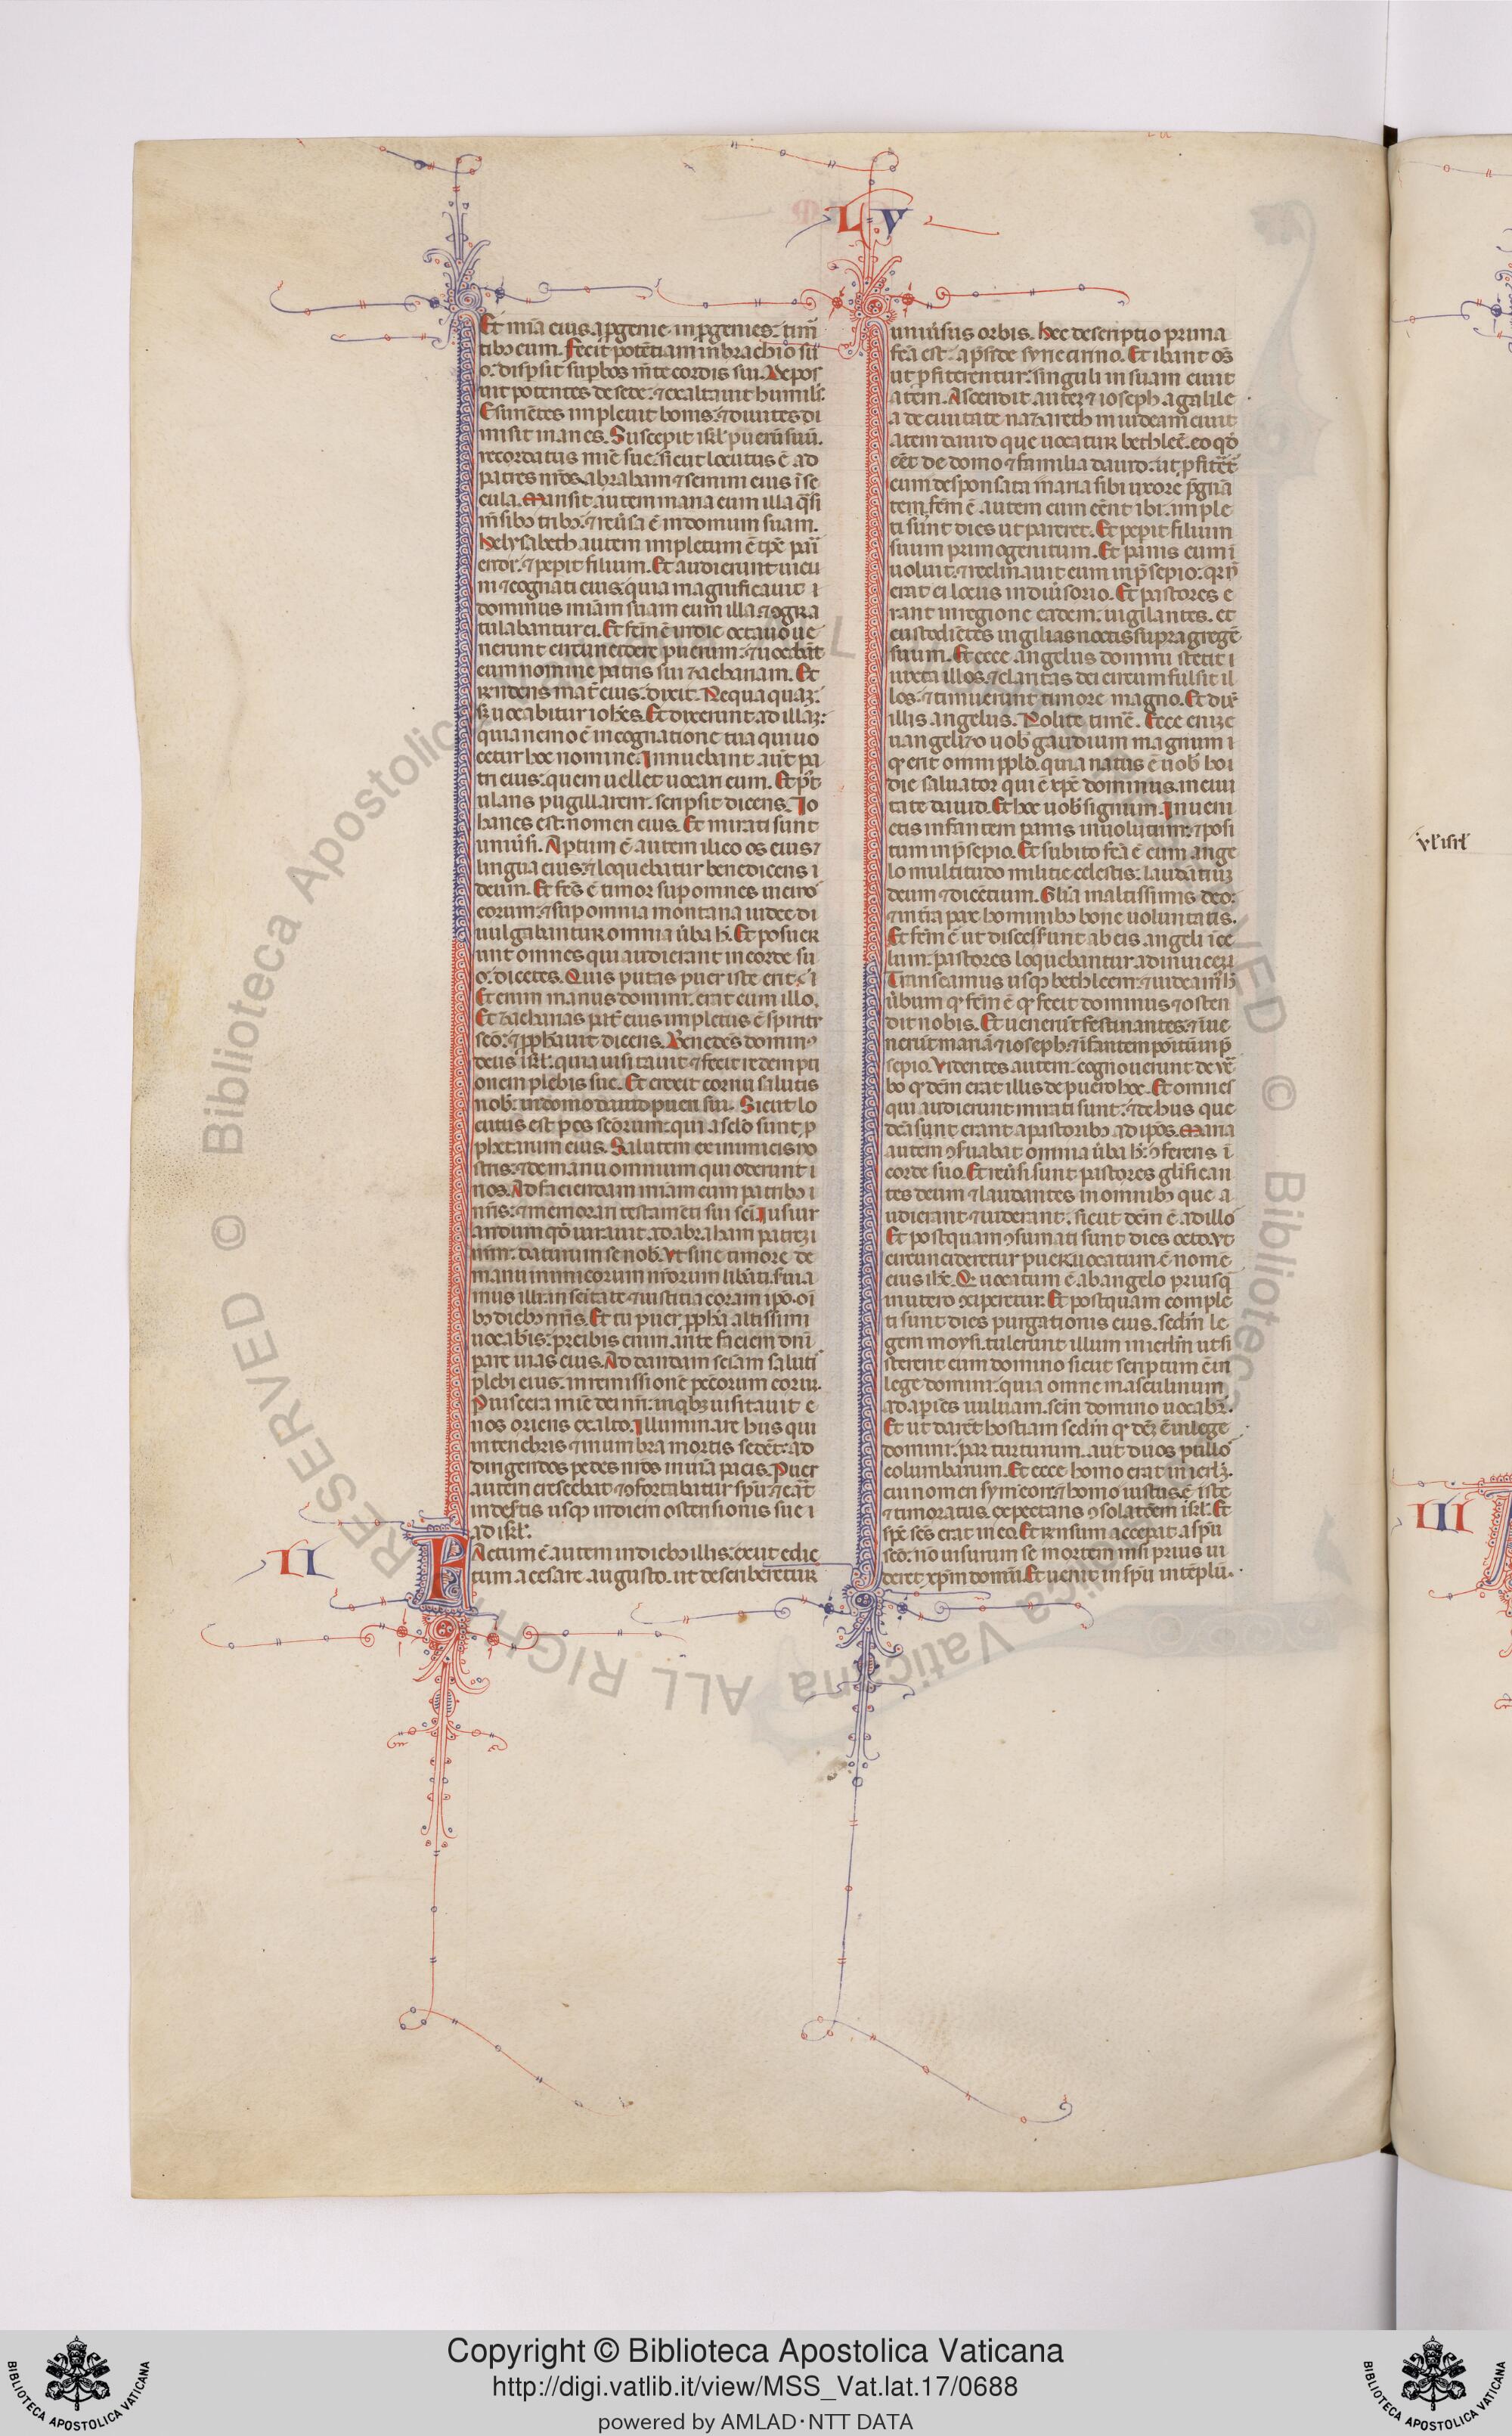 L V
Et mĩa eius. a ꝓgenie. in ꝓgenies: timẽ
tibꝰ eum. Fecit potẽtiam in brachio su
o: disp̱sit sup̱bos mẽte cordis sui. Depos
uit potentes de sede: ⁊ exaltauit humiles.
Esuriẽtes impleuit bonis: ⁊ diuites di
misit inanes. Suscepit isrl̃ pueruz suũ.
recordatus mĩe sue. sicut locutus ẽ ad
patres nr̃os. abraham ⁊ semini eius ĩ se
cula. Mansit autem maria cum illa q̃si
mẽsibꝰ tribꝰ: ⁊ reũsa ẽ in domum suam.
Helysabeth autem impletum ẽ tp̃s pari
endi: ⁊ pep̱it filium. Et audierunt uicin
ni ⁊ cognati eius. quia magnificauit ı
dominus mĩam suam cum illa: ⁊ ↄgra
tulabantur ei. Et fc̃m ẽ in die octauo ue
nerunt circuncidere puerum: ⁊ uocabãt
eum nomine patris sui zachariam. Et
rn̄dens mat̃ eius: dixit. Nequaquaz:
sz uocabitur ioh̃es. Et dixerunt ad illaz:
quia nemo ẽ in cognatione tua qui uo
cetur hoc nomine. Innuebant aut̃ pa
tri eius: quem uellet uocari eum. Et p̃t
ulans pugillarem: scripsit dicens. Io
hanes est nomen eius. Et mirati sunt
uniũsi. Aptum ẽ autem ilico os eius ⁊
lingua eius: ⁊ loquebatur benedicens ı
deum. Et fc̃s ẽ timor sup omnes uicino
eorum: ⁊ sup omnia montana iudee di
uulgabantur omnia ũba h̃. Et posuer
unt omnes qui audierant in corde su
o: dicẽtes. Quis putas puer iste erit? ı
Et enim manus domini: erat cum illo.
Et zacharias pat̃ eius impletus ẽ spiritu
sc̃o: ⁊ ꝓph̃auit dicens. Benedc̃s dominꝰ
deus isrl̃. quia uisitauit ⁊ fecit redempti
onem plebis sue. Et erexit cornu salutis
nob̃: in domo dauid pueri sui. Sicut lo
cutus est p os sc̃orum: qui a sc̃lo sunt ꝓ
phetarum eius. Salutem ex inimicis no
stris: ⁊ de manu omnium qui oderunt ı
nos. Ad faciendam mĩam cum patribꝰ ı
nr̃is: ⁊ memorari testamẽti sui sc̃i. Iusiur
andum qd̃ iurauit ad abraham patrez ı
nr̃m: daturum se nob̃. Vt sine timore de
manu inimicorum nr̃orum libãti. serui a
mus illi: in sc̃itate ⁊ iustitia coram ip̃o. oĩ
bꝰ diebꝰ nr̃is. Et tu puer ꝓph̃a altissimi
uocab̃is: p̃eibis enim ante faciem dñi
parare uias eius. Ad dandam sciãm saluti
plebi eius: in remissionẽ pec̃orum eoruz.
P uiscera mĩe dei nr̃i: in qbꝰ uisitauit e
nos oriens ex alto. Illuminare hiis qui
in tenebris ⁊ in umbra mortis sedẽt: ad
dirigendos pedes nr̃os in uiã pacis. Puer
autem crescebat: ⁊ ↄfortabatur sp̃u: ⁊ erat
in deserts usqꝫ in diem ostensionis sue ı
ad isrl̃.
II
FActum ẽ autem in diebꝰ illis: exiit edic
tum a cesare augusto. ut describeretur
uniũsus orbis. Hec descriptio prima
fc̃a est: a p̃side syrie cirino. Et ibant oẽs
ut ꝓfiterentur: singuli in suam ciuit
atem. Ascendit autez ⁊ ioseph. a galile
a de ciuitate nazareth in iudeam ciuit
atem dauid que uocatur bethleẽ. eo qd̃
eẽt de domo ⁊ familia dauid: ut ꝓfitẽt̃
cum desponsata maria sibi uxore p̃gnã
tem. fc̃m ẽ autem cum eẽnt ibi: imple
ti sunt dies ut pareret. Et pep̱it filium
suum primogenitum. Et pãnis eum ĩ
uoluit: ⁊ reclinauit eum in p̃sepio: qr nõ
erat ei locus in diũsorio. Et pastores e
rant in regione eadem: uigilantes. et
custodiẽtes uigilias noctis supra gregẽ
suum. Et ecce angelus domini stetit ı
iuxta illos: ⁊ claritas dei circumfulsit il
los: ⁊ timuerunt timore magno. Et dix̃
illis angelus. Nolite timẽ. Ecce eniz e
uangelizo uob̃ gaudium magnum ı
qđ erit omni ppl̃o. quia natus ẽ uob̃ hoi
die saluator qui ẽ xp̃c dominus. in ciui
tate dauid. Et hoc uob̃ signum. Inueni
etis infantem pannis inuolutum: ⁊ posi
tum in p̃sepio. Et subito fc̃a ẽ cum ange
lo multitudo militie celestis: laudãtiuz
deum ⁊ dicẽtium. Gl̃ia in altissimis deo:
⁊ in t̃ra pax hominibꝰ bone uoluntatis.
Et fc̃m ẽ ut discess̃unt ab eis angeli ĩ ce
lum: pastores loquebantur ad inuicez.
Transeamus usqꝫ bethleem: ⁊ uideamꝰ h̃
ũbum qđ fc̃m ẽ qđ fecit dominus ⁊ osten
dit nobis. Et uenerũt festinantes: ⁊ ĩue
nerũt mariã ⁊ ioseph: ⁊ ĩfantem poĩtũ in p̃
sepio. Videntes autem: cognouerunt de ũ
bo qđ dc̃m erat illis de puero hoc. Et omnes
qui audierunt mirati sunt: ⁊ de hiis que
dc̃a sunt erant a pastoribꝰ ad ip̃os. Maria
autem ↄseruabat omnia ũba h̃: ↄferens ĩ
corde suo. Et reũsi sunt pastores gl̃ifican
tes deum ⁊ laudantes in omnibꝰ que a
udierant ⁊ uiderant: sicut dc̃m ẽ ad illo
Et postquam ↄsumati sunt dies octo. ut
circuncideretur puer: uocatum ẽ nomẽ
eius ih̃c. Qđ uocatum ẽ ab angelo priusq̃
in utero ↄcip̱eretur. Et postquam comple
ti sunt dies purgationis eius. sedm̃ le
gem moysi. tulerunt illum in ierl̃m ut si
sterent eum domino sicut scriptum ẽ in
lege domini: quia omne masculinum
adap̱iẽs uuluam. sc̃m domino uocab̃r.
Et ut darẽt hostiam sedm̃ qđ dc̃m ẽ in lege
domini: par turturum. aut duos pullo
columbarum. Et ecce homo erat in ierl̃z.
cui nomen symeon: ⁊ homo iustus ẽ iste
⁊ timoratus. expectans ↄsolatõem isrl̃. Et
sp̃c sc̃s erat in eo. Et rn̄sum accep̱at a sp̃u
sc̃o: nõ uisurum se mortem nisi prius ui
deret xp̃m domini. Et uenit in sp̃u in tẽplũ.
III
Copyright © Biblioteca Apostolica Vaticana
http://digi.vatlib.it/view/MSS_Vat.lat.17/0688
powered by AMLAD·NTT DATA
BIBLIOTECA APOSTOLICA VATICANA
BIBLIOTECA APOSTOLICA VATICANA
© Biblioteca Apostolica Vaticana ALL RIGHTS RESERVED